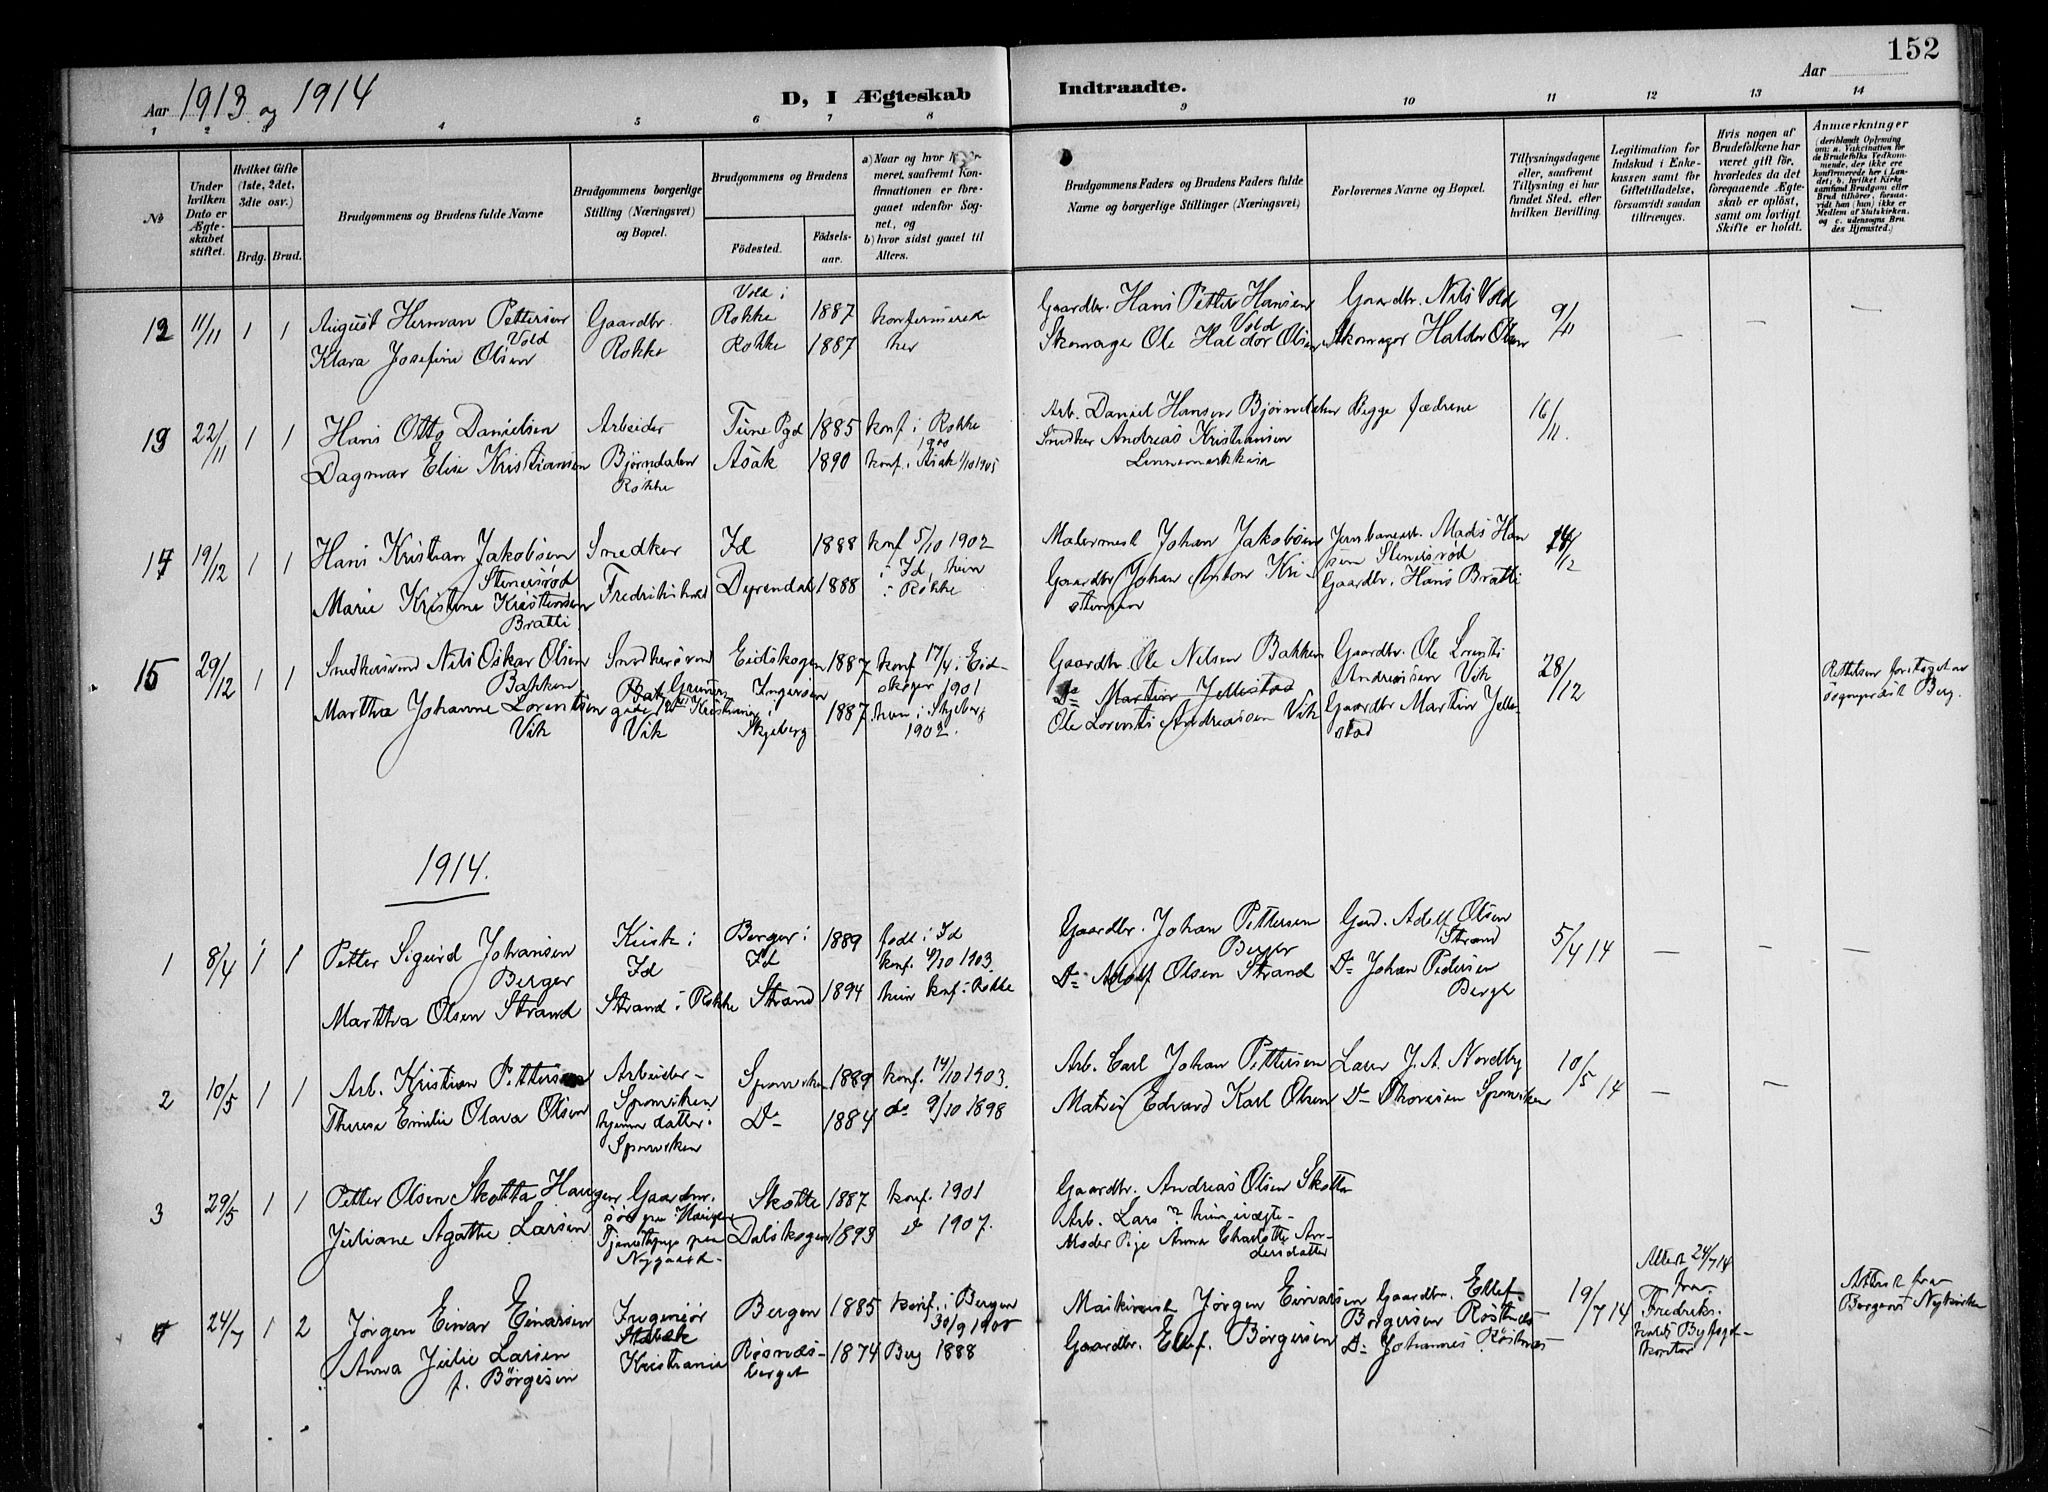 152
Aar 1913 og 1914
D, I Ægteskab Indtraadte.
Aar
1 2 3 4 5 6 7 8 9 10 11 12 13 14
No
Under hvilken Dato er Ægteskabet stiftet.
Hvilket Gifte (1ste, 2det, 3die osv.)
Brdg. Brud.
Brudgommens og Brudens fulde Navne
Brudgommens borgerlige Stilling (Næringsvei) og Bopæl.
Brudgommens og Brudens
Födested. Födsels-aar.
a) Naar og hvor konfirmeret, saafremt Konfirmationen er foregaaet udenfor Sognet, og
b) hvor sidst gaaet til Alters.
Brudgommens Faders og Brudens Faders fulde Navne og borgerlige Stillinger (Næringsvei)
Forlovernes Navne og Bopæl.
Tillysningsdagene eller, saafremt Tillysning ei har fundet Sted, efter hvilken Bevilling.
Legitimation for Indskud i Enkekassen samt for Giftetilladelse, forsaavidt saadan tiltrænges.
Hvis nogen af Brudefolkene har været gift för, hvorledes da det foregaaende Ægteskab er oplöst, samt om lovligt Skifte er holdt.
Anmærkninger (deriblandt Oplysning om: a. Vakcination for de Brudefolks Vedkommende, der ikke ere konfirmerede her i Landet; b. hvilket Kirkesamfund Brudgom eller Brud tilhörer, forsaavidt han (hun) ikke er Medlem af Statskirken, og c. udensogns Brudes Hjemsted.)
12 11/11 1 1 August Herman Pettersen Vold Gaardbr. Rokke Vold i Rokke 1887 konfirmerede her Gaardbr. Hans Petter Hansen Vold Gaardbr. Nils Vold 9/11
Klara Josefine Olsen Rokke 1887 Skomager Ole Haldor Olsen Skomager Haldor Olsen
13 22/11 1 1 Hans Otto Danielsen Arbeider Tune Pgd 1885 konf. i Rokke 1900 Arb. Daniel Hansen Bjørndalen Begge fædrene 16/11.
Dagmar Elise Kristiansen Bjørndalen Rokke Asak 1890 konf. i Asak 1/10 1905 Snedker Andreas Kristiansen
14 19/12 1 1 Hans Kristian Jakobsen Stenersrød Snedker Id 1888 konf 5/10 1902 i Id, hun i Rokke Malermest Johan Jakobsen Jernbanearb. Mads Hansen Stenersrød
Marie Kristine Kristiansen Bratti Fredrikshald 1888 Gaardbr Johan Anton Kristiansen Gaardbr. Hans Bratti
15 29/12 1 1 Snedkersvend Nils Oskar Olsen Bakken Snedkersvend Eidskogen 1887 konf 17/4 i Eidskogen 1901 Gaardbr. Ole Nilsen Bakken Gaardbr. Ole Lorents Andreasen Vik 28/12
Martha Johanne Lorentsen Vik Kristiania Vik Ingersen i Skjeberg 1887 hun i Skjeberg 1902. Do Martin Jellestad Ole Lorents Andreassen Vik Gaardbr Martin Jellestad
Rettelsen foretaget av sogneprest Berg.
1914.
1 8/4 1 1 Petter Sigurd Johansen Berger Kusk i Id Berger i Id 1889 født i Id konf. 4/10 1903. Gaardbr. Johan Pettersen Berger Gard. Adolf Olsen Strand 5/4 14
Martha Olsen Strand Strand i Rokke Strand 1894 hun konf. i Rokke Do Adolf Olsen Strand Do Johan Pedersen Berger
2 10/5 1 1 Arb. Kristian Pettersen Arbeider Sponviken Sponviken 1889 konf. 14/10 1903. Arb. Carl Johan Pettersen Laur J. A. Nordby 10/5 14
Therese Emilie Olava Olsen hjemme datter Sponviken Do 1884 do 9/10 1898 Matros Edvard Karl Olsen Do Thoresen Sponviken
3 29/5 1 1 Petter Olsen Skotta Haugen Gaardm. søn paa Haugen Skotte 1887 konf. 1901 Gaardbr. Andreas Olsen Skotta
Juliane Agathe Larsen Tjenestepige paa Nygaard Dalskogen 1893 do 1907. Arb. Lars ? hun uægte Moder Pige Anna Charlotte Andersdatter
4 24/7 1 2 Jørgen Einar Einarsen Ingeniør Stabæk Bergen 1885 konf. i Bergen 30/9 1900 Maskinmest Jørgen Einarsen Gaardbr. Ellef Børgersen Røsnæs 19/7 14
Anna Julie Larsen f. Børgesen Kristiania Røsnæsberget 1874 Berg 1888 Gaardbr. Ellef. Børgersen Do Johannes Røsnæs
Attest 24/7 14 fra Fredrikshalds Byfogdkontor
Attest fra Bergens Nykirke